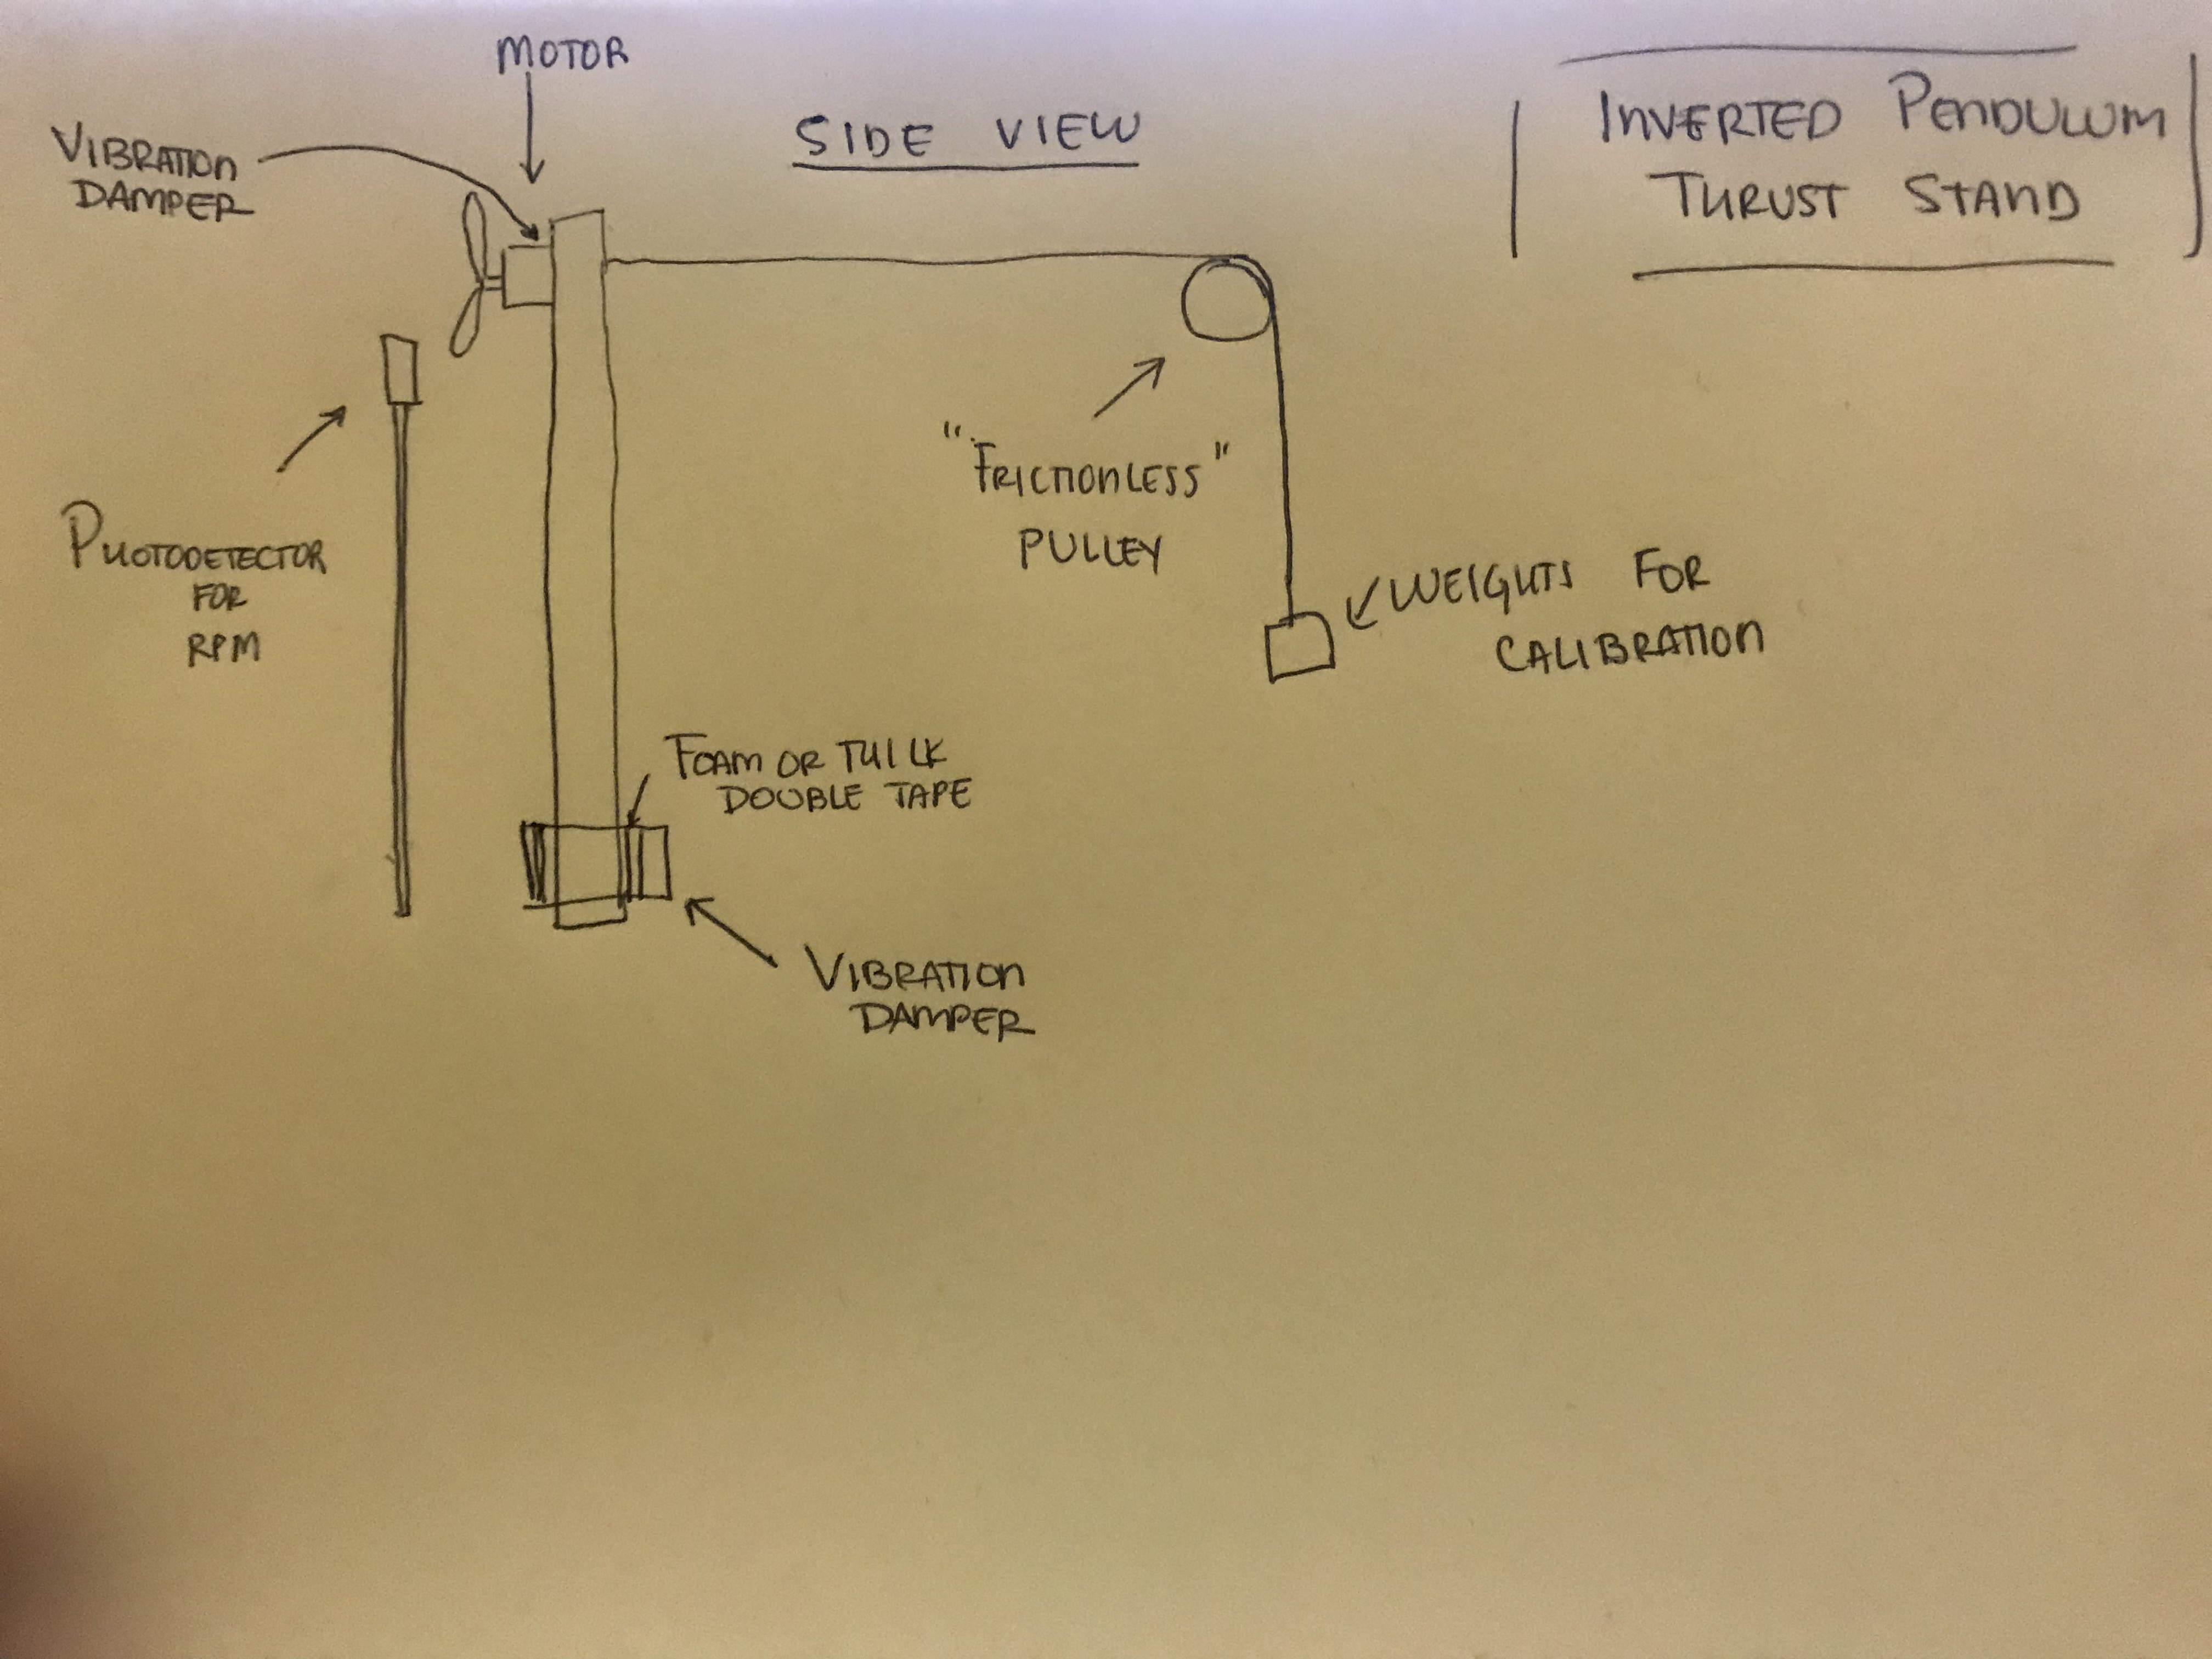 MOTOR
VIBRATION
DAMPER
SIDE VIEW
INVERTED PENDULUM
THRUST STAND
"FRICTIONLESS"
PULLEY
PHOTODETECTOR
FOR
RPM
WEIGHTS FOR
CALIBRATION
FOAM OR THICK
DOUBLE TAPE
VIBRATION
DAMPER